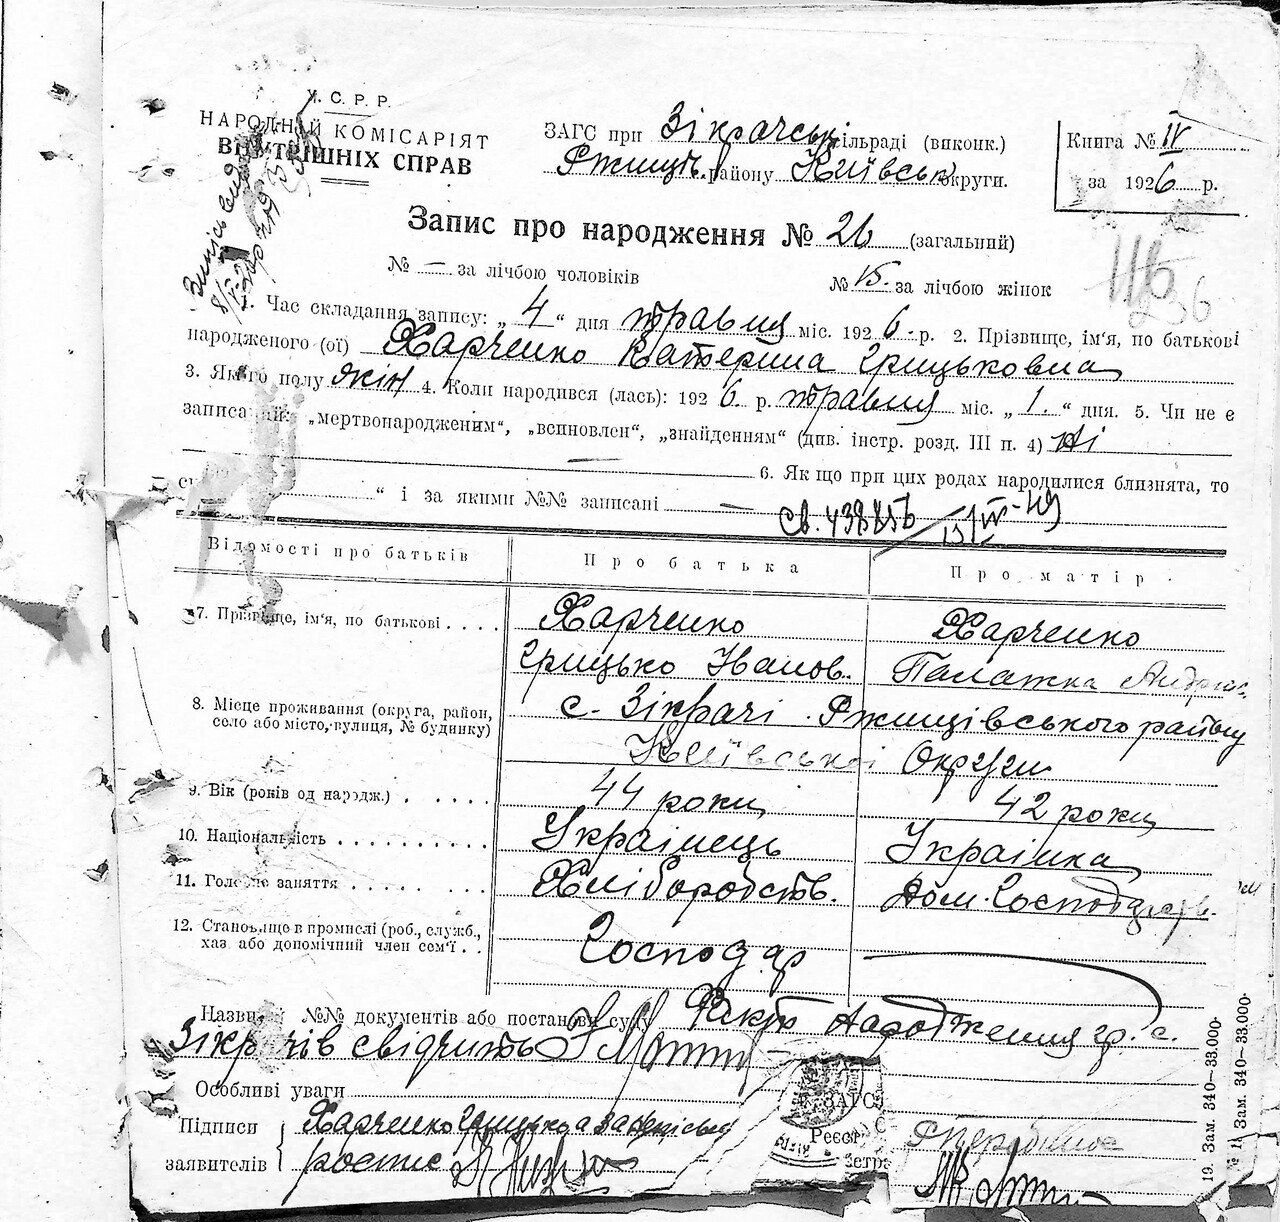 У. С. Р. Р.
НАРОДНІЙ КОМІСАРІЯТ
ВНУТРІШНІХ СПРАВ
ЗАГС при Зікрачськ сільраді (виконк.)
Ржищів. району Київськ округи.
Книга № IV
за 1926 р.
Запис про народження № 26 (загальний)
№ — за лічбою чоловіків
№ 15. за лічбою жінок
116
236
1. Час складання запису: „ 4 “ дня травня міс. 1926. р. 2. Прізвище, ім'я, по батькові
народженого (ої) Харченко Катерина Грицьковна
3. Якого полу жін 4. Коли народився (лась): 1926. р. травня міс. „ 1. “ дня. 5. Чи не є
записаний: „мертвонародженим“, „всиновлен“, „знайденням“ (див. інстр. розд. III п. 4) Ні
— 6. Як що при цих родах народилися близнята, то
“ і за якими №№ записані —
Відомості про батьків
Про батька
Про матір
7. Прізвище, ім'я, по батькові . . . .
Харченко
Грицько Іванов.
Харченко
Палажка
8. Місце проживання (округа, район,
село або місто, вулиця, № будинку)
с. Зікрачі Ржищівського району
Київської Округи
9. Вік (років од народж.) . . . . . .
44 роки
42 роки
10. Національність . . . . . . . . . .
Українець
Українка
11. Головне заняття . . . . . . .
Хліборобств.
Дом. Господарств.
12. Становище в промислі (роб., служб.,
хаз. або допомічний член сем'ї . .
Господар
Назви і №№ документів або постанови суду Факт народження гр. с.
Зікрачів свідчить
Особливі уваги
Підписи
заявителів
Харченко Грицько а за
роспис
ЗАГС
Реєст
19. Зам. 340—33.000·
Зам. 340—33.000·